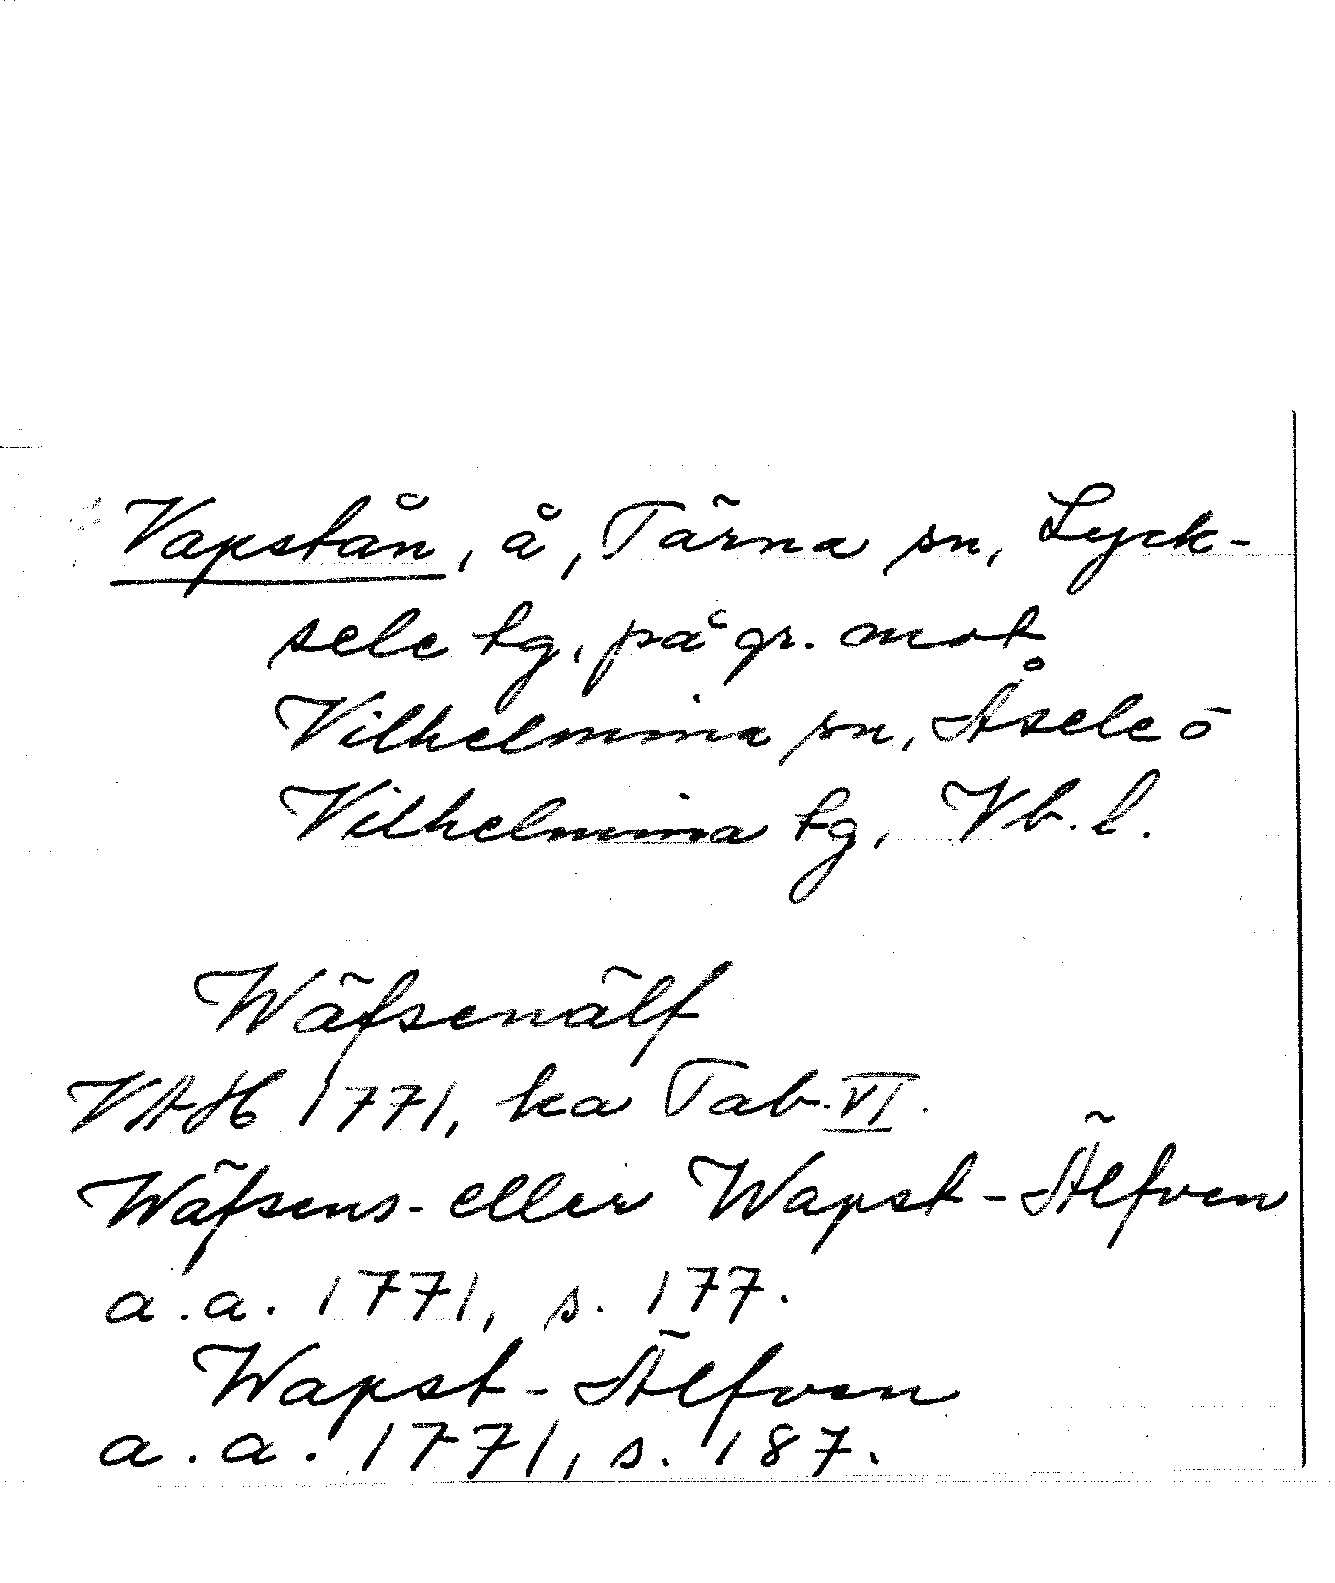 Vapstån, å, Tärna sn, Lyck-
sele tg, på gr. mot
Vilhelmina sn, Åsele o
Vilhelmina tg, Vb. l.
Wäfsenälf
VAH 1771, ka Tab. VI.
Wäfsens- eller Wapst-Älfven
a.a. 1771, s. 177.
Wapst-Älfven
a.a. 1771, s. 187.